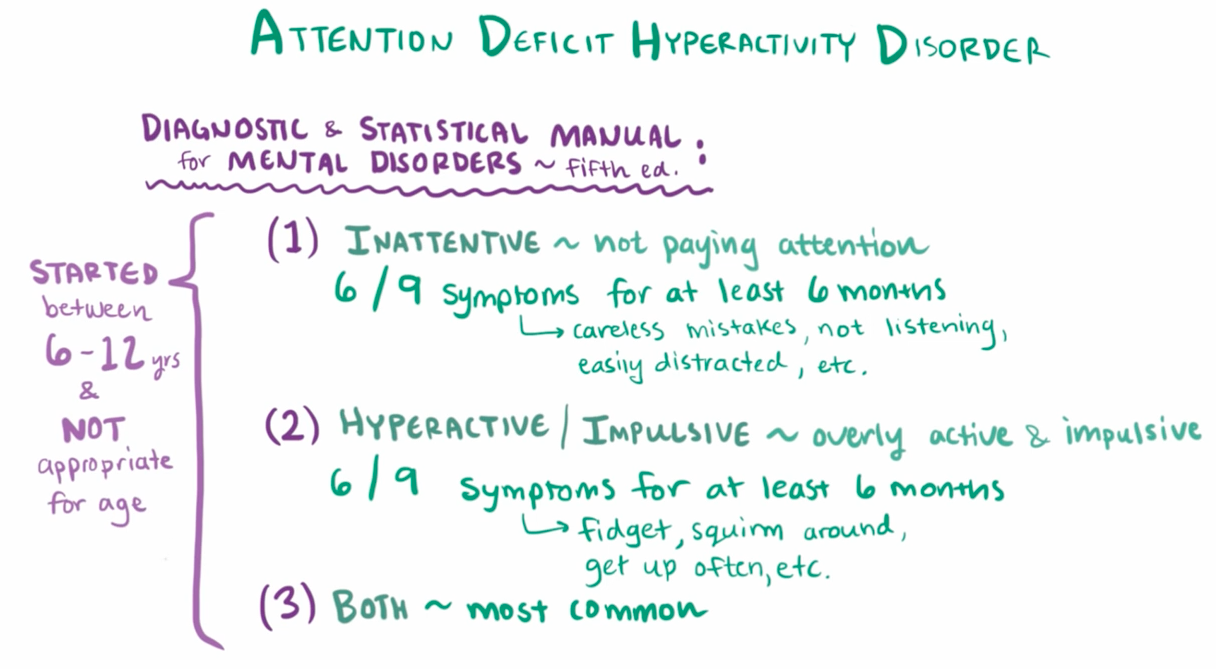 ATTENTION DEFICIT HYPERACTIVITY DISORDER
DIAGNOSTIC & STATISTICAL MANUAL :
for MENTAL DISORDERS ~ fifth ed.
STARTED
between
6-12 yrs
&
NOT
appropriate
for age
(1) INATTENTIVE ~ not paying attention
6/9 symptoms for at least 6 months
↳ careless mistakes, not listening,
easily distracted, etc.
(2) HYPERACTIVE / IMPULSIVE ~ overly active & impulsive
6/9 symptoms for at least 6 months
↳ fidget, squirm around,
get up often, etc.
(3) BOTH ~ most common